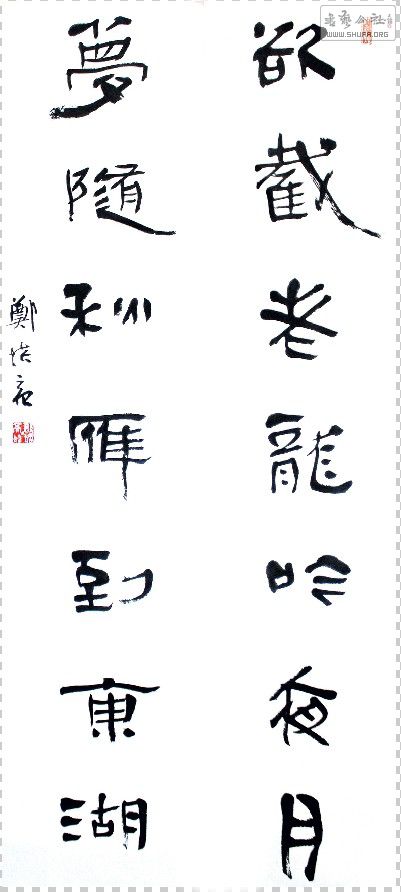 欲截老龍吟夜月
夢隨秋雁到東湖
鄭培亮
書藝公社
WWW.SHUFA.ORG